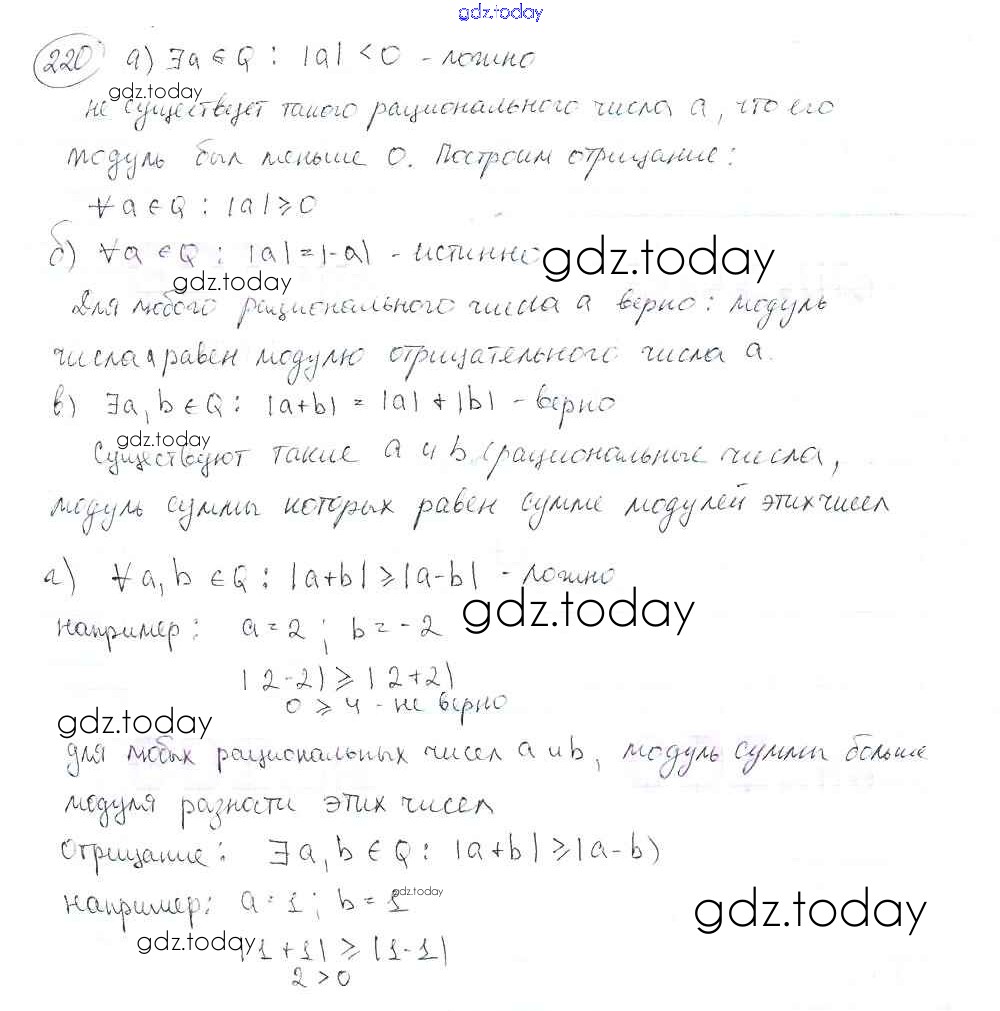 gdz.today
220 а) ∃a ∈ Q : |a| < 0 - ложно
gdz.today
не существует такого рационального числа a, что его
модуль был меньше 0. Построим отрицание:
∀a∈Q : |a| ⩾ 0
б) ∀a ∈ Q : |a| = |-a| - истинно
gdz.today
gdz.today
Для любого рационального числа a верно: модуль
числа a равен модулю отрицательного числа a.
в) ∃a, b ∈ Q : |a+b| = |a| + |b| - верно
gdz.today
Существуют такие a и b (рациональные числа,
модуль суммы которых равен сумме модулей этих чисел
г) ∀a, b ∈ Q : |a+b| ⩾ |a-b| - ложно
gdz.today
например: a = 2 ; b = -2
|2-2| ⩾ |2+2|
0 ⩾ 4 - не верно
gdz.today
для любых рациональных чисел a и b, модуль суммы больше
модуля разности этих чисел
Отрицание: ∃a, b ∈ Q : |a+b| ⩾ |a-b|
gdz.today
например: a = 1 ; b = 1
gdz.today
gdz.today
|1+1| ⩾ |1-1|
2 > 0